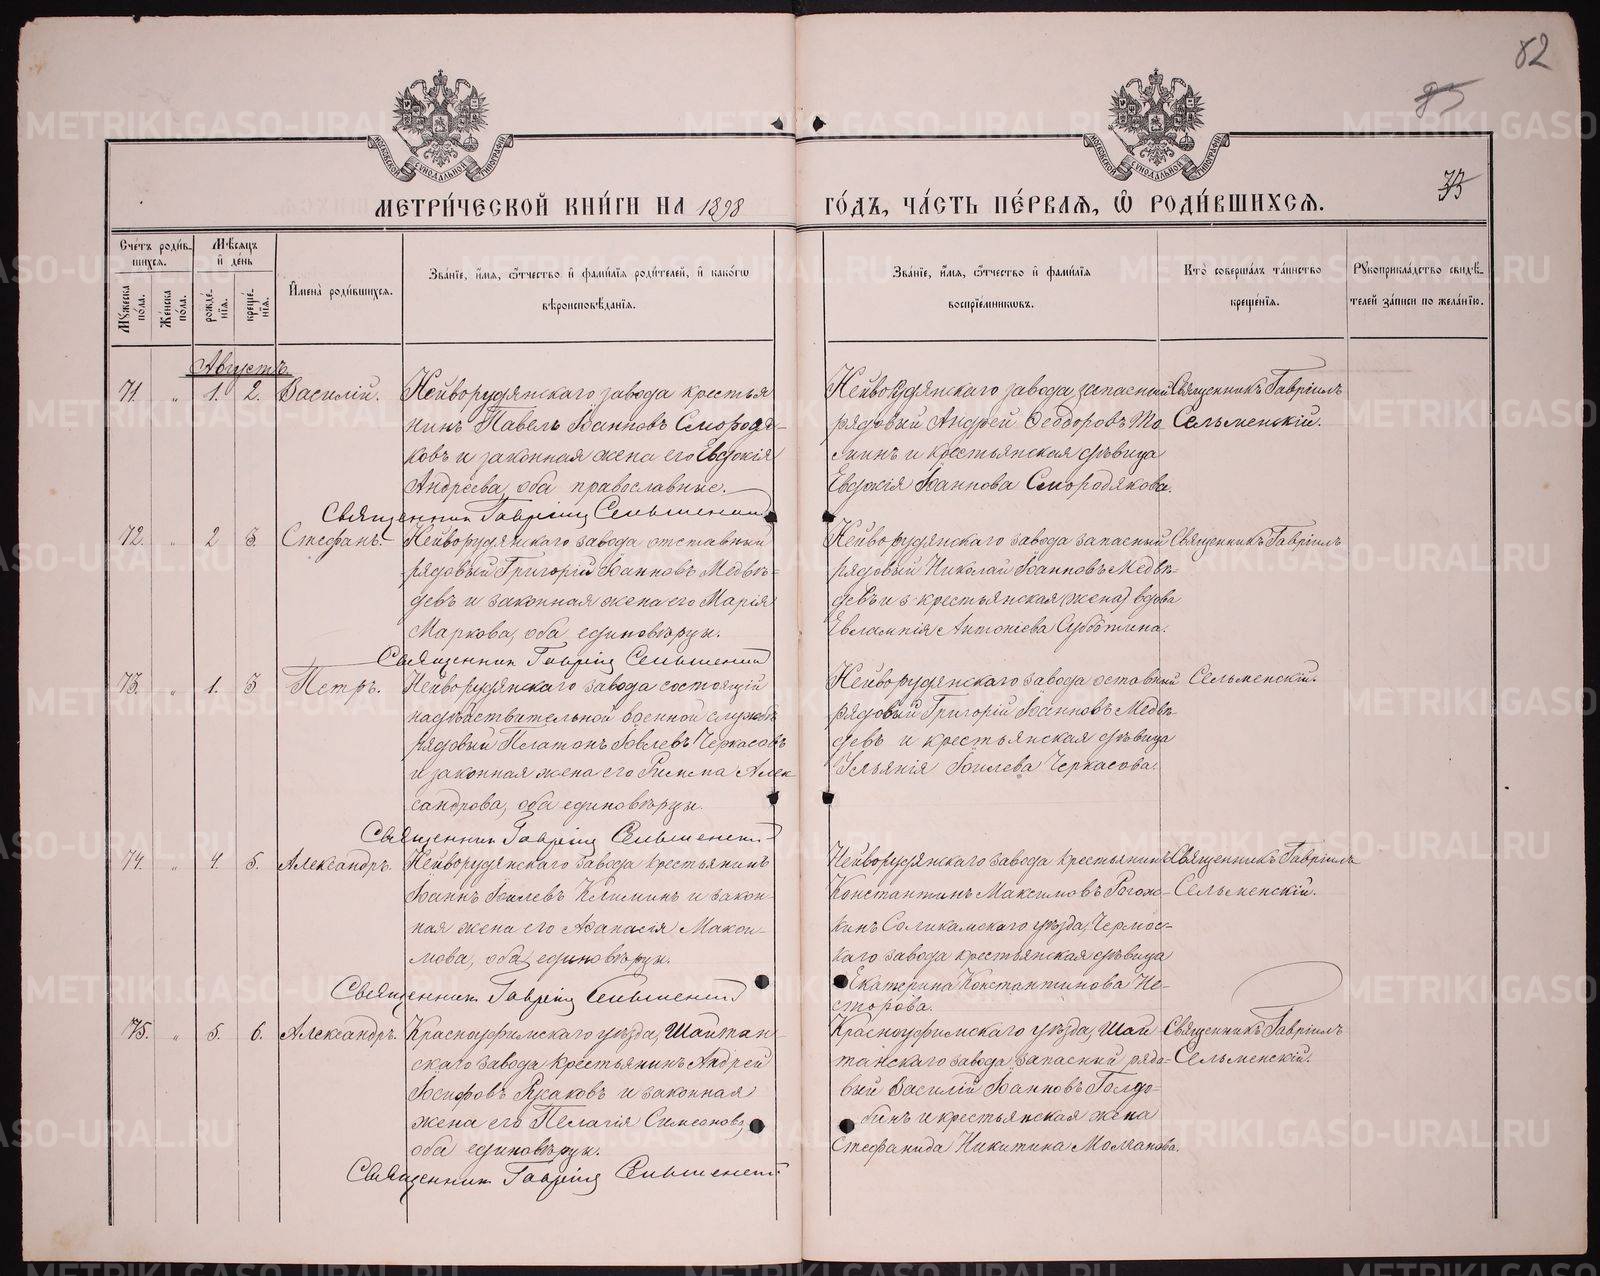 82
85
73
МОСКОВСКОЙ СѴНОДАЛЬНОЙ ТИПОГРАФІИ
МОСКОВСКОЙ СѴНОДАЛЬНОЙ ТИПОГРАФІИ
МЕТРИ́ЧЕСКОЙ КНИ́ГИ НА 1898
ГО́ДЪ, ЧА́СТЬ ПЕ́РВАѦ, Ѽ РОДИ́ВШИХСѦ.
Сче́тъ роди́в-
шихсѧ.
Мꙋжеска по́ла.
Же́нска по́ла.
Мѣ́сѧцъ
и҆ де́нь
рожде́-
нїѧ.
креще́-
нїѧ.
И҆мена̀ роди́вшихсѧ.
Зва́нїе, и҆́мѧ, ѻ҆́тчество и҆ фами́лїѧ роди́телей, и҆ како́гѡ
вѣроисповѣ́данїѧ.
Зва́нїе, и҆́мѧ, ѻ҆́тчество и҆ фами́лїѧ
воспрїе́мникѡвъ.
Кто̀ соверша́лъ та́инство
креще́нїѧ.
Рꙋкоприкла́дство свидѣ́-
телей за́писи по жела́нїю.
Августъ
71. „ 1. 2. Василій. Нейворудянскаго завода крестья
нинъ Павелъ Іоанновъ Смородя-
ковъ и законная жена его Евдокія
Андреева, оба православные.
Священник Гавріил Сельменский
Нейворудянскаго завода запасный
рядовый Андрей Ѳеодоровъ То
минъ и крестьянская дѣвица
Евдокія Іоаннова Смородякова.
Священникъ Гавріилъ
Сельменскій.
72. „ 2 3. Стефанъ. Нейворудянскаго завода отставный
рядовый Григорій Іоанновъ Медвѣ-
девъ и законная жена его Марія
Маркова, оба единовѣрцы.
Священник Гавріил Сельменский
Нейворудянскаго завода запасный
рядовый Николай Іоанновъ Медвѣ-
девъ и крестьянская (жена) вдова
Евлампія Антоніева Субботина.
Священникъ Гавріилъ
73. „ 1. 3 Петръ. Нейворудянскаго завода состоящій
надѣйствительной военной службѣ
рядовый Платонъ Іовлевъ Черкасовъ
и законная жена его Римма Алек
сандрова, оба единовѣрцы.
Священник Гавріил Сельменский
Нейворудянскаго завода оставный
рядовый Григорій Іоанновъ Медвѣ-
девъ и крестьянская дѣвица
Ульянія Іовлева Черкасова.
Сельменскій.
74. „ 4. 5. Александръ. Нейворудянскаго завода крестьянинъ
Іоаннъ Іовлевъ Климинъ и закон
ная жена его Аѳанасія Макси-
мова, оба единовѣрцы.
Священник Гавріил Сельменский
Нейворудянскаго завода крестьянинъ
Константинъ Максимовъ Рогож-
кинъ Соликамскаго уѣзда, Чермос-
каго завода крестьянская дѣвица
Екатерина Константинова Не-
сторова.
Священникъ Гавріилъ
Сельменскій.
75. „ 5. 6. Александръ. Красноуфимскаго уѣзда, Шайтан-
скаго завода крестьянинъ Андрей
Іосифовъ Русаковъ и законная
жена его Пелагія Симеонова,
оба единовѣрцы.
Священник Гавріил Сельменский
Красноуфимскаго уѣзда, Шай
танскаго завода запасный рядо-
вый Василій Іоанновъ Голдо-
бинъ и крестьянская жена
Стефанида Никитина Молчанова.
Священникъ Гавріилъ
Сельменскій.
METRIKI.GASO-URAL.RU